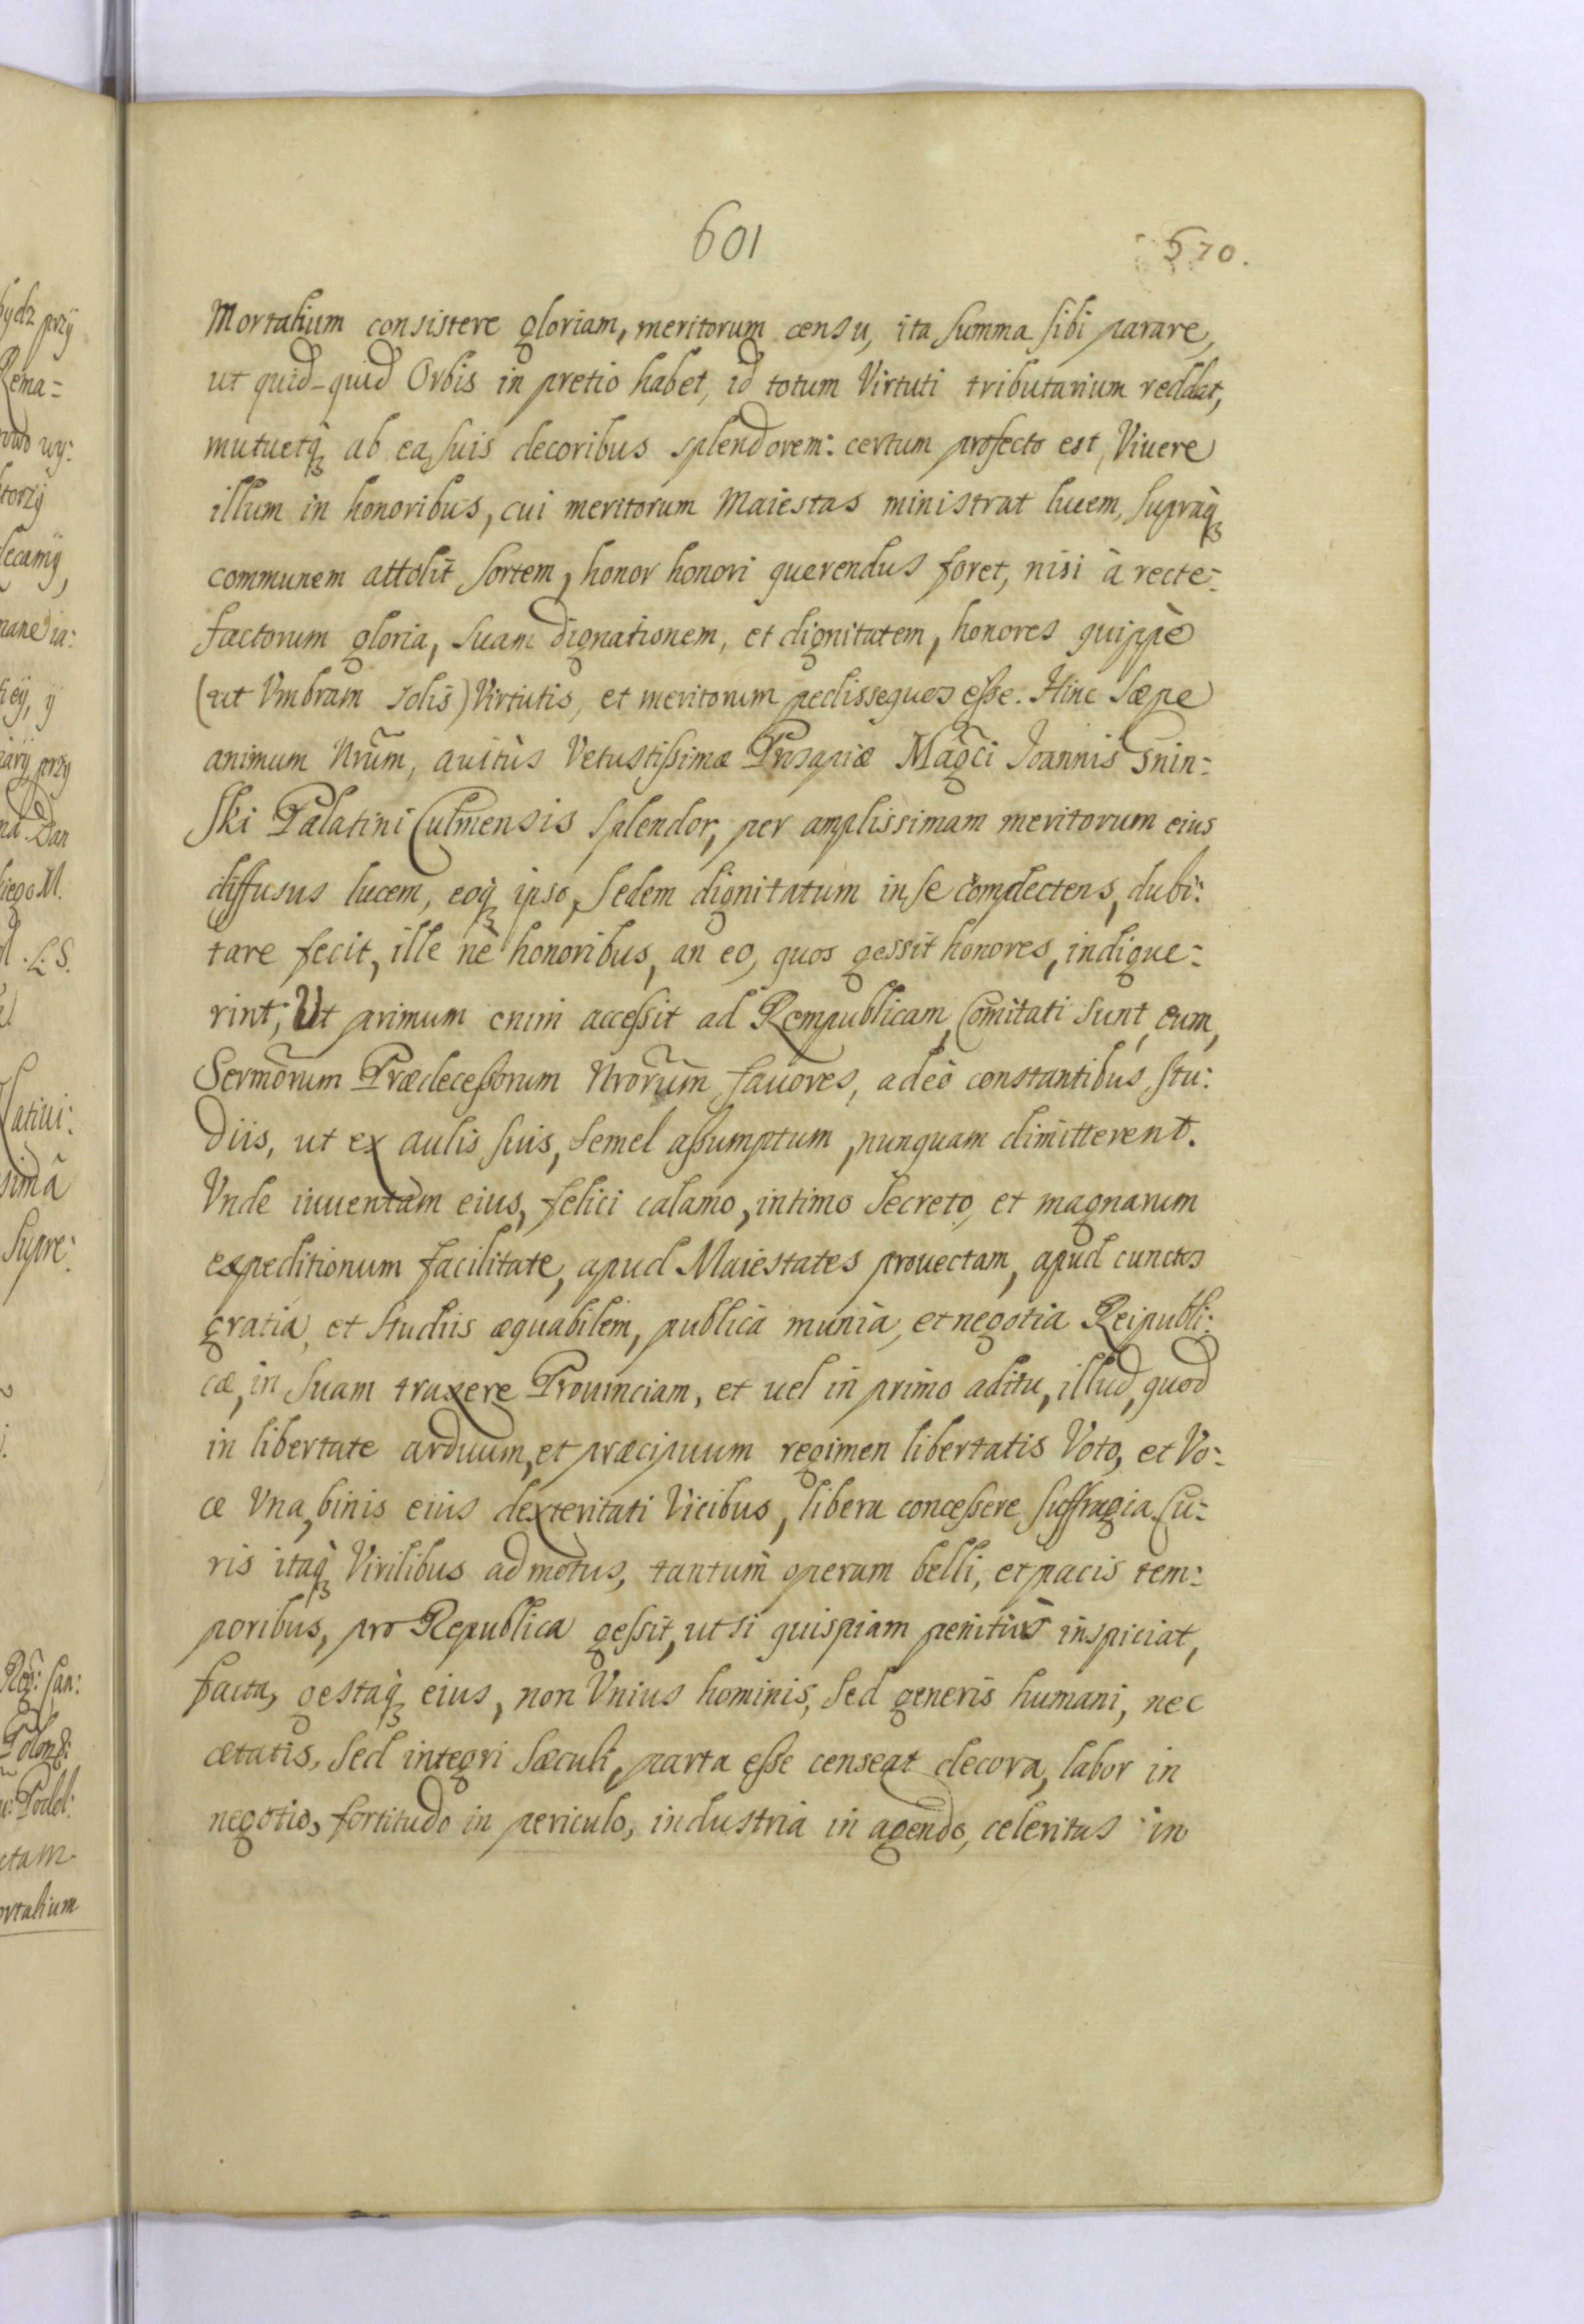 601
570.
Mortalium consistere gloriam, meritorum censu, ita summa sibi parare,
ut quid-quid Orbis in pretio habet, id totum Virtuti tributarium reddat,
mutuetq́ʒ ab ea suis decoribus splendorem: certum profecto est, Viuere
illum in honoribus, cui meritorum Maiestas ministrat lucem, supraq̀ʒ
communem attolit sortem, honor honori querendus foret, nisi à recte-
factorum gloria, suam dignationem, et dignitatem, honores quippè
(ut Vmbram solis) Virtutis, et meritorum pedissequos esse. Hinc sæpe
animum Nrũm, auitùs Vetustissimæ Prosapiæ Magc̃i Joannis Gnin-
ski Palatini Culmensis splendor, per amplissimam meritorum eius
diffusus lucem, eoq́ʒ ipso, sedem dignitatum in se complectens, dubi:
tare fecit, ille nè honoribus, an eo, quos gessit honores, indigue-
rint; Ut primum enim accessit ad Rempublicam, Comitati sunt, eum,
Sermõrum Prædecessorum Nrorũm fauores, adeò constantibus, stu:
diis, ut ex aulis suis, semel assumptum, nunquam dimitterent.
Vnde iuuentam eius, felici calamo, intimo secreto, et magnarum
expeditionum facilitate, apud Maiestates prouectam, apud cunctos
gratia, et studiis æquabilem, publica munia, et negotia Reipubli:
cæ, in suam traxere Prouinciam, et uel in primo aditu, illud, quod
in libertate arduum, et præcipuum regimen libertatis Voto, et Vo-
ce Vna, binis eius dexteritati Vicibus, libera concessere suffragia. Cu-
ris itaq̀ʒ Virilibus admotus, tantum operum belli, et pacis tem:
poribus, pro Republica gessit, ut si quispiam penitùs inspiciat,
facta, gestaq̀ʒ eius, non Vnius hominis, sed generis humani, nec
ætatis, sed integri sæculi, parta esse censeat decora, labor in
negotio, fortitudo in periculo, industria in agendo, celeritas in